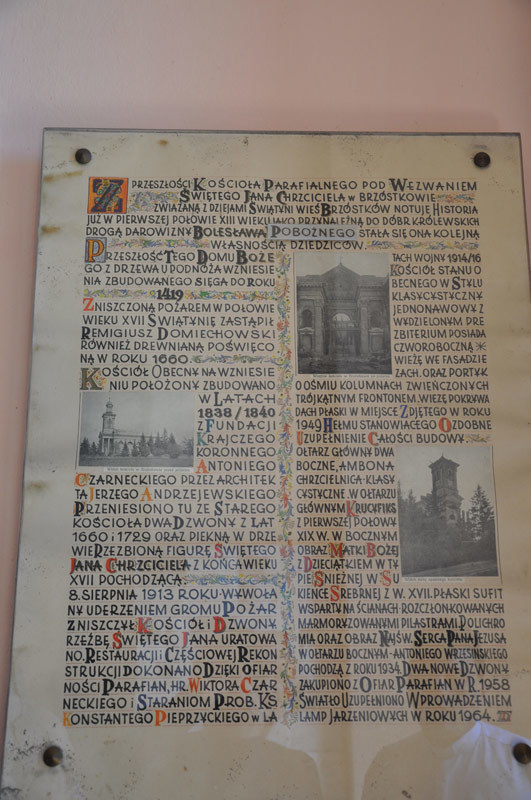 Z PRZESZŁOŚCI KOŚCIOŁA PARAFIALNEGO POD WEZWANIEM
ŚWIĘTEGO JANA CHRZCICIELA W BRZÓSTKOWIE
ZWIĄZANĄ Z DZIEJAMI ŚWIĄTYNI WIEŚ BRZÓSTKÓW NOTUJE HISTORIA
JUŻ W PIERWSZEJ POŁOWIE XIII WIEKU JAKO PRZYNALEŻNĄ DO DÓBR KRÓLEWSKICH
DROGĄ DAROWIZNY BOLESŁAWA POBOŻNEGO STAŁA SIĘ ONA KOLEJNĄ
WŁASNOŚCIĄ DZIEDZICÓW.
PRZESZŁOŚĆ TEGO DOMU BOŻE
GO Z DRZEWA U PODNÓŻA WZNIESIE
NIA ZBUDOWANEGO SIĘGA DO ROKU
1419
ZNISZCZONĄ POŻAREM W POŁOWIE
WIEKU XVII ŚWIĄTYNIĘ ZASTĄPIŁ
REMIGIUSZ DOMIECHOWSKI
RÓWNIEŻ DREWNIANĄ POŚWIĘCO
NĄ W ROKU 1660
KOŚCIÓŁ OBECNY NA WZNIESIE
NIU POŁOŻONY ZBUDOWANO
W LATACH
1838/1840
Z FUNDACJI
KRAJCZEGO
KORONNEGO
ANTONIEGO
CZARNECKIEGO PRZEZ ARCHITEK
TA JERZEGO ANDRZEJEWSKIEGO
PRZENIESIONO TU ZE STAREGO
KOŚCIOŁA DWA DZWONY Z LAT
1660 I 1729 ORAZ PIĘKNĄ W DRZE
WIE RZEZBIONĄ FIGURĘ ŚWIĘTEGO
JANA CHRZCICIELA Z KOŃCA WIEKU
XVII POCHODZĄCĄ.
8. SIERPNIA 1913 ROKU WYWOŁA
NY UDERZENIEM GROMU POŻAR
ZNISZCZYŁ KOŚCIÓŁ I DZWONY.
RZEŹBĘ ŚWIĘTEGO JANA URATOWA
NO. RESTAURACJI I CZĘŚCIOWEJ REKON
STRUKCJI DOKONANO DZIĘKI OFIAR
NOŚCI PARAFIAN, HR. WIKTORA CZAR
NECKIEGO I STARANIOM PROB. KS.
KONSTANTEGO PIEPRZYCKIEGO W LA
TACH WOJNY 1914/16
KOŚCIÓŁ STANU O
BECNEGO W STYLU
KLASYCYSTYCZNY
JEDNONAWOWY Z
WYDZIELONYM PRE
ZBITERIUM POSIADA
CZWOROBOCZNĄ
WIEŻĘ WE FASADZIE
ZACH. ORAZ PORTYK
O OŚMIU KOLUMNACH ZWIEŃCZONYCH
TRÓJKĄTNYM FRONTONEM. WIEŻĘ POKRYWA
DACH PŁASKI W MIEJSCE ZDJĘTEGO W ROKU
1949 HEŁMU STANOWIĄCEGO OZDOBNE
UZUPEŁNIENIE CAŁOŚCI BUDOWY.
OŁTARZ GŁÓWNY DWA
BOCZNE, AMBONA
CHRZCIELNICA KLASY
CYSTYCZNE. W OŁTARZU
GŁÓWNYM KRUCYFIKS
Z PIERWSZEJ POŁOWY
XIX W. W BOCZNYM
OBRAZ MATKI BOŻEJ
Z DZIECIĄTKIEM W TY
PIE ŚNIEŻNEJ W SU
KIENCE SREBRNEJ Z W. XVII. PŁASKI SUFIT
WSPARTY NA ŚCIANACH ROZCZŁONKOWANYCH
MARMORYZOWANYMI PILASTRAMI. POLICHRO
MIA ORAZ OBRAZ NAJŚW. SERCA PANA JEZUSA
W OŁTARZU BOCZNYM - ANTONIEGO WRZESINSKIEGO
POCHODZĄ Z ROKU 1934. DWA NOWE DZWONY
ZAKUPIONO Z OFIAR PARAFIAN W R. 1958
ŚWIATŁO UZUPEŁNIONO WPROWADZENIEM
LAMP JARZENIOWYCH W ROKU 1964.